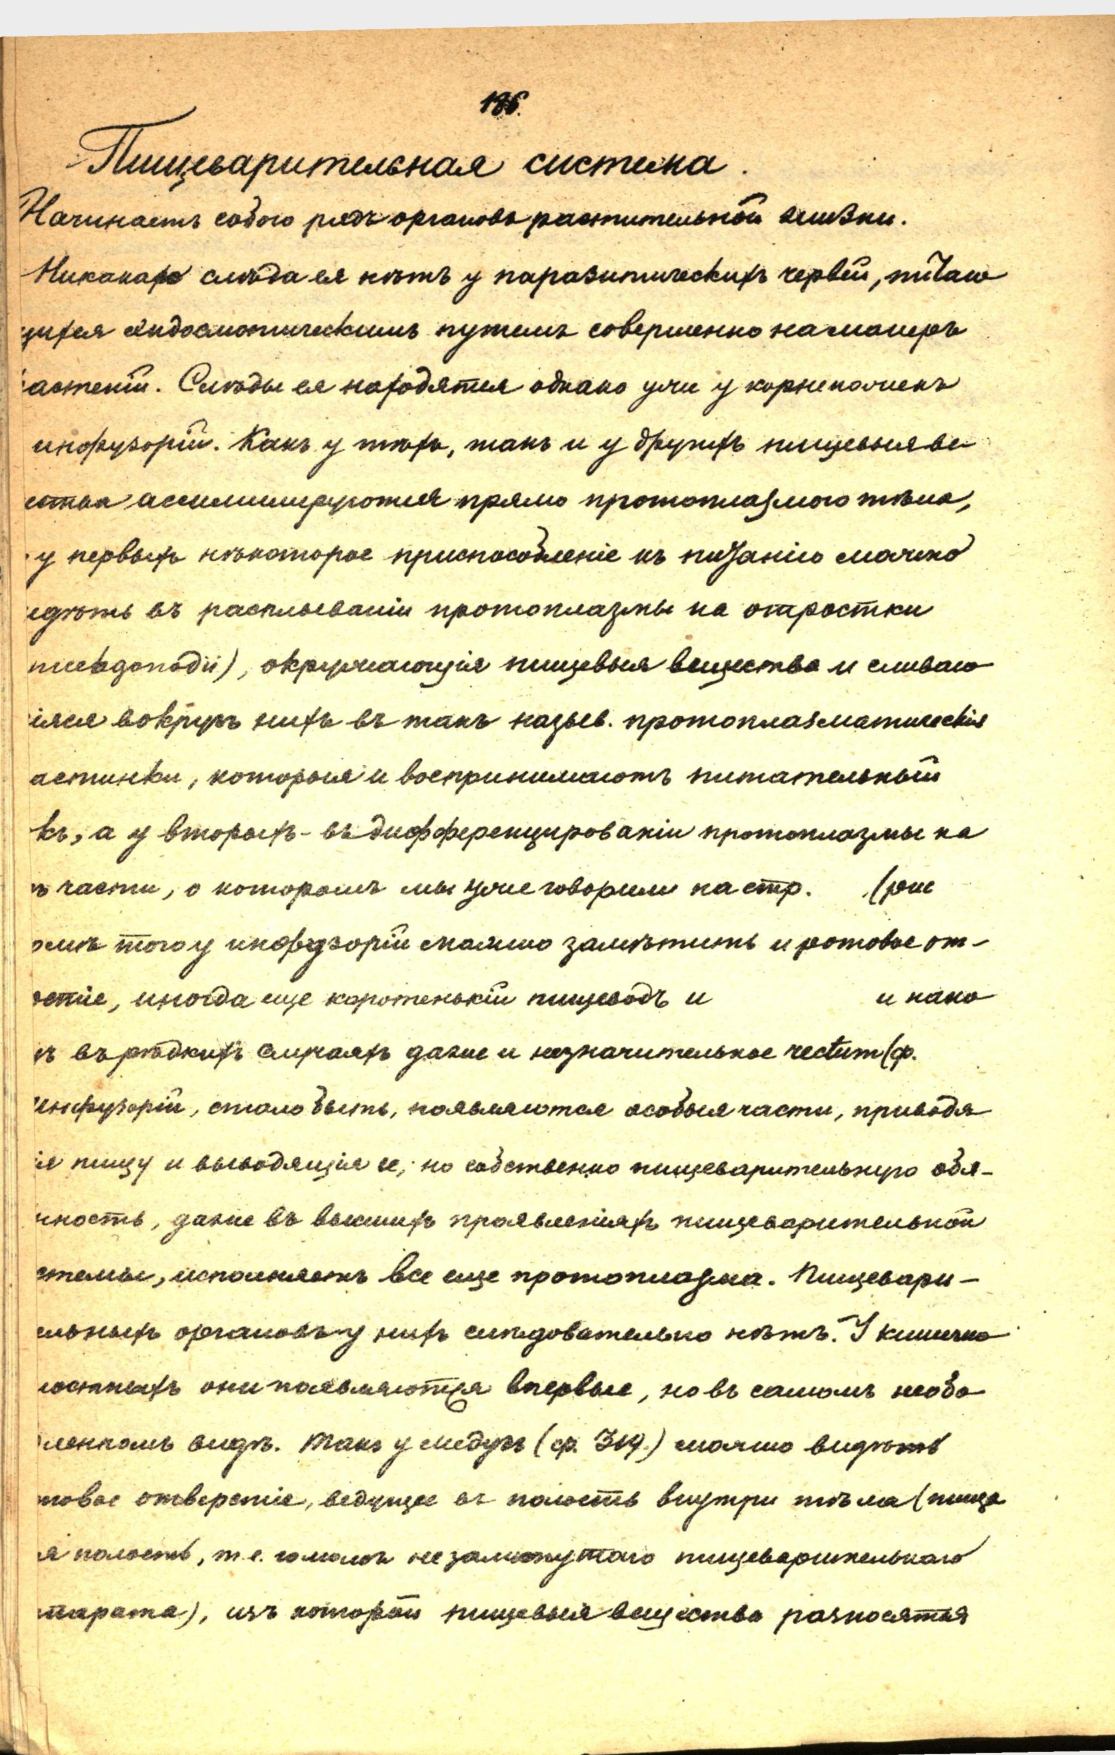 186.
Пищеварительная система.
Начинаетъ собою рядъ органовъ растительной жизни.
Никакого слѣда ея нѣтъ у паразитическихъ червей, питаю
щихся эндосмотическимъ путемъ совершенно на манеръ
астеній. Слѣды ея находятся однако уже у корненожекъ
инфузорій. Какъ у тѣхъ, такъ и у другихъ пищевыя ве
ества ассимилируются прямо протоплазмою тѣла,
у первыхъ нѣкоторое приспособленіе къ питанію можно
идѣть въ расплываніи протоплазмы на отростки
псевдоподіи), окружающія пищевыя вещества и сливаю
іяся вокругъ нихъ въ такъ назыв. протоплазматическія
астинки, которыя и воспринимаютъ питательный
къ, а у вторыхъ - въ дифференцированіи протоплазмы на
ъ части, о которомъ мы уже говорили на стр. (рис
омѣ того у инфузорій можно замѣтить и ротовое от-
рстіе, иногда еще коротенькій пищеводъ и и нако
ъ въ рѣдкихъ случаяхъ даже и незначительное rectum (ф.
инфузорій, стало быть, появляются особыя части, приводя
ія пищу и выводящія ее, но собственно пищеварительную обя-
нность, даже въ высшихъ проявленіяхъ пищеварительной
стемы, исполняетъ все еще протоплазма. Пищевари-
ельныхъ органовъ у нихъ слѣдовательно нѣтъ. У кишечно
лостныхъ они появляются впервые, но въ самомъ необо
бленномъ видѣ. Такъ у медузъ (ф. 319.) можно видѣть
товое отверстіе, ведущее въ полость внутри тѣла (пище
я полость, т. е. гомологъ незамкнутаго пищеварительнаго
ппарата), изъ которой пищевыя вещества разносятся